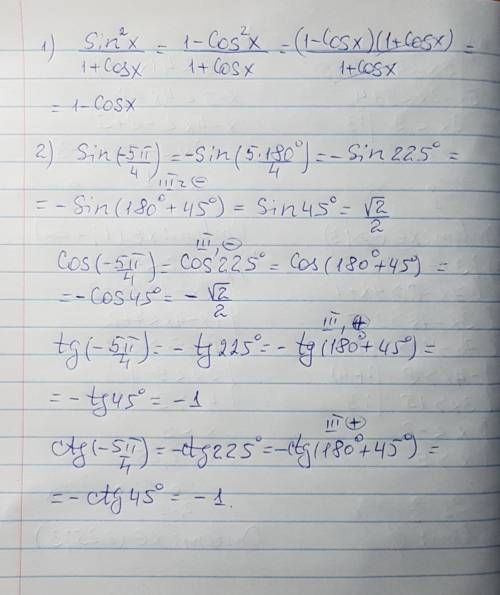 1) sin²x / 1+cosx = 1-cos²x / 1+cosx = (1-cosx)(1+cosx) / 1+cosx =
= 1-cosx
2) sin(-5π/4) = -sin(5·180°/4) = -sin225° =
III г ⊖
= -sin(180°+45°) = sin45° = √2/2
III, ⊖
cos(-5π/4) = cos225° = cos(180°+45°) =
= -cos45° = -√2/2
III, ⊕
tg(-5π/4) = -tg225° = -tg(180°+45°) =
= -tg45° = -1
III ⊕
ctg(-5π/4) = -ctg225° = -ctg(180°+45°) =
= -ctg45° = -1.